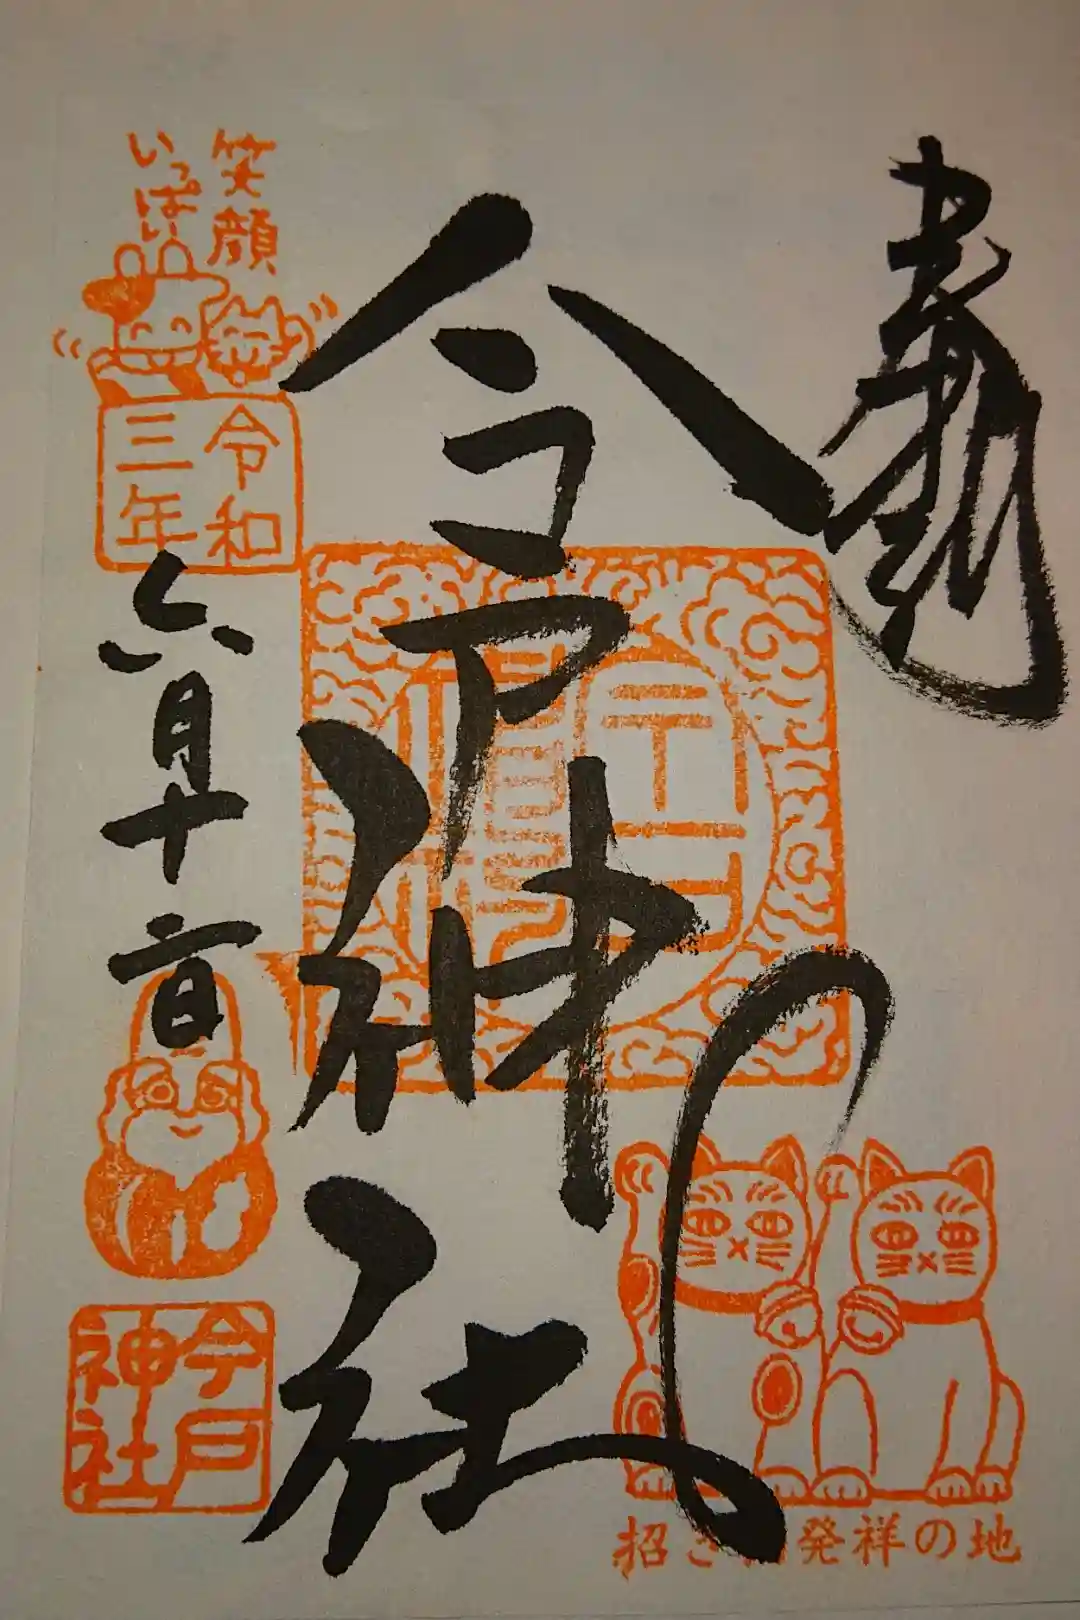 今戸神社
招き猫発祥の地
笑顔
いっぱい
令和
三年
六月十二日
今戸
神社